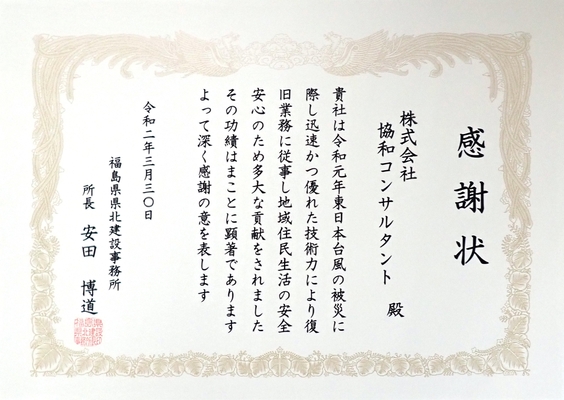 感謝状
株式会社
協和コンサルタント 殿
貴社は令和元年東日本台風の被災に
際し迅速かつ優れた技術力により復
旧業務に従事し地域住民生活の安全
安心のため多大な貢献をされました
その功績はまことに顕著であります
よって深く感謝の意を表します
令和二年三月三〇日
福島県県北建設事務所
所長 安田 博道